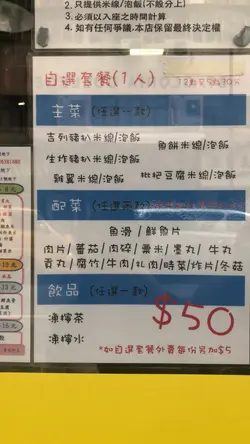 2. 只提供米線/泡飯(不設分上)
3. 必須以入座之時間計算
4. 如有任何爭議.本店保留最終決定權
自選套餐(1人)
主菜 (任選一款)
吉列豬扒米線/泡飯
魚餅米線/泡飯
生炸豬扒米線/泡飯
雞翼米線/泡飯
枇杷豆腐米線/泡飯
配菜
魚滑/鮮魚片
肉片/蕃茄/肉碎/粟米/墨丸/牛丸
貢丸/腐竹/牛肉/扎肉/時菜/炸片/冬菇
飲品 (任選一款)
凍檸茶
凍檸水
$50
*如自選套餐外賣每份另加$5